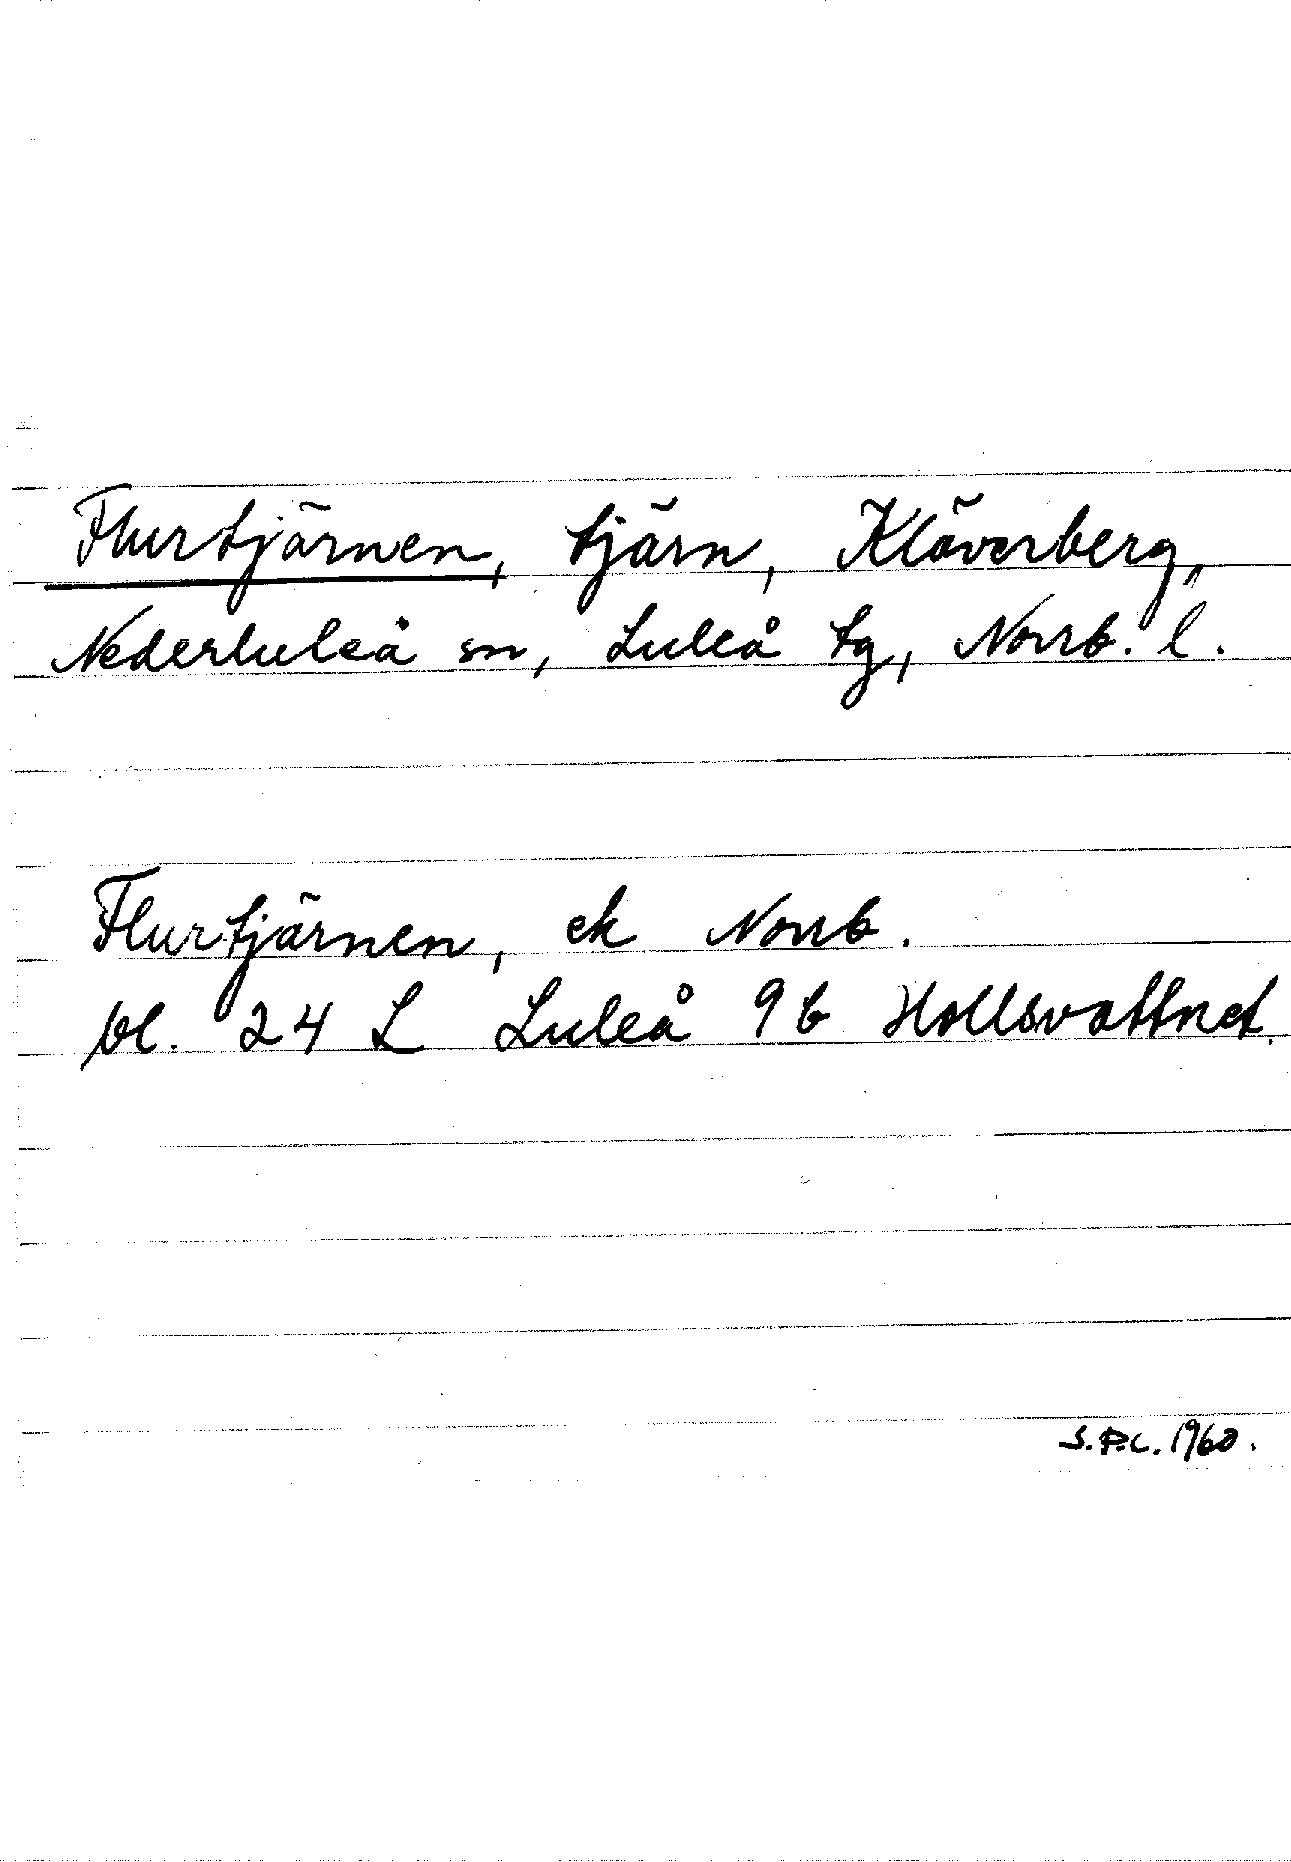 Flurtjärnen, tjärn, Klöverberg,
Nederluleå sn, Luleå tg, Norrb. l.
Flurtjärnen, ek Norrb.
bl. 24 L Luleå 9b Hollsvattnet.
S.P.L. 1960.